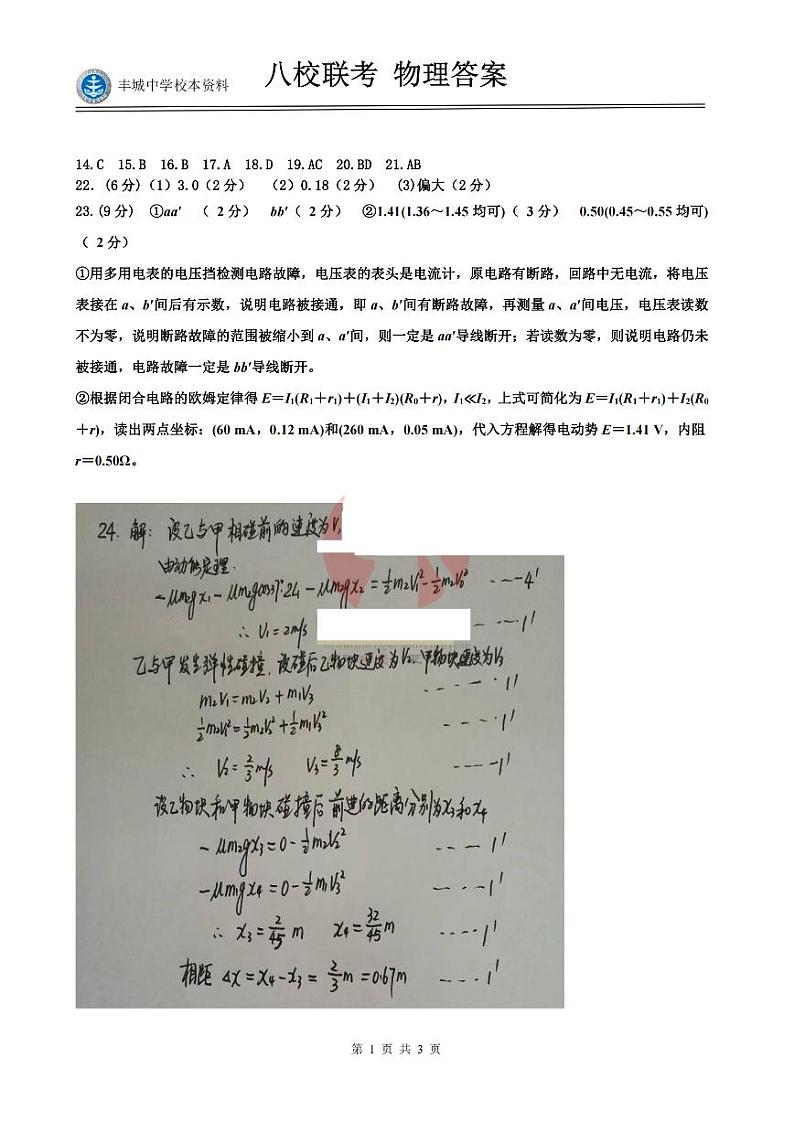 丰城中学校本资料
八校联考 物理答案
14.C 15.B 16.B 17.A 18.D 19.AC 20.BD 21.AB
22. (6分)(1)3.0(2分) (2)0.18(2分) (3)偏大(2分)
23.(9分) ①aa′ ( 2分) bb′( 2分) ②1.41(1.36～1.45均可)( 3分) 0.50(0.45～0.55均可)
( 2分)
①用多用电表的电压挡检测电路故障，电压表的表头是电流计，原电路有断路，回路中无电流，将电压
表接在a、b′间后有示数，说明电路被接通，即a、b′间有断路故障，再测量a、a′间电压，电压表读数
不为零，说明断路故障的范围被缩小到a、a′间，则一定是aa′导线断开；若读数为零，则说明电路仍未
被接通，电路故障一定是bb′导线断开。
②根据闭合电路的欧姆定律得E＝I₁(R₁＋r₁)＋(I₁＋I₂)(R₀＋r)，I₁≪I₂，上式可简化为E＝I₁(R₁＋r₁)＋I₂(R₀
＋r)，读出两点坐标：(60 mA，0.12 mA)和(260 mA，0.05 mA)，代入方程解得电动势E＝1.41 V，内阻
r＝0.50Ω。
24. 解: 设乙与甲相碰前的速度为V₁
由动能定理:
-μm₂gx₁-μm₂gcos37°·2L-μm₂gx₂=½m₂V₁²-½m₂V₀² ----4'
∴ V₁=2m/s ----1'
乙与甲发生弹性碰撞, 设碰后乙物块速度为V₂, 甲物块速度为V₃
m₂V₁=m₂V₂+m₁V₃ ----1'
½m₂V₁²=½m₂V₂²+½m₁V₃² ----1'
∴ V₂=2/3 m/s V₃=8/3 m/s ----1'
设乙物块和甲物块碰撞后前进的距离分别为x₃和x₄
-μm₂gx₃=0-½m₂V₂² ----1'
-μm₁gx₄=0-½m₁V₃² ----1'
∴ x₃=2/45 m x₄=32/45 m ----1'
相距 Δx=x₄-x₃=2/3 m=0.67m ----1'
第 1 页 共 3 页